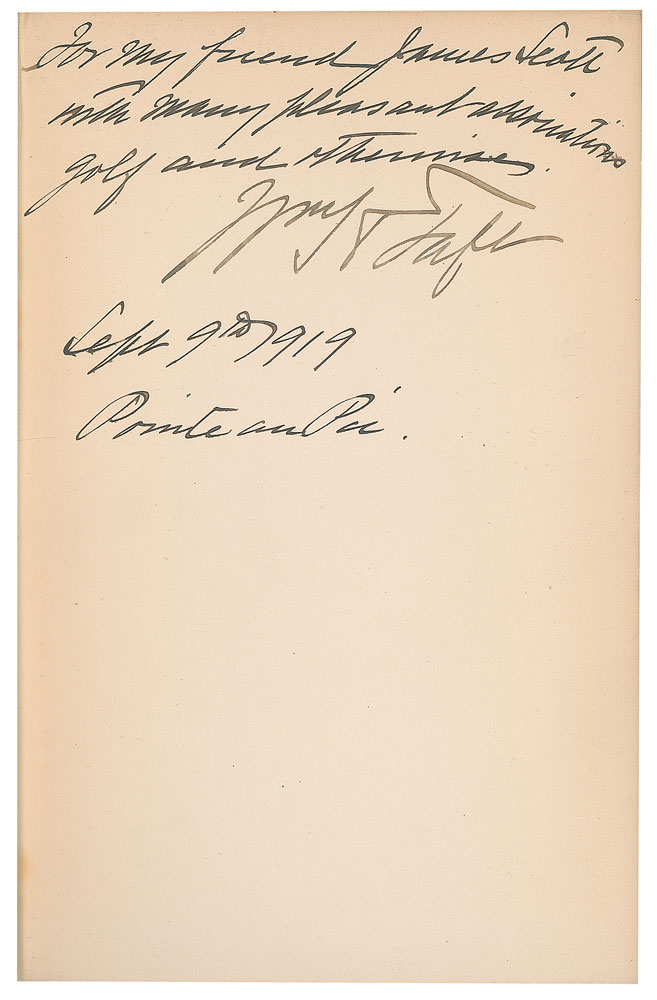 For my friend James Scott
with many pleasant associations
golf and otherwise.
Wm H Taft
Sept 9th 1919
Pointe au Pic.